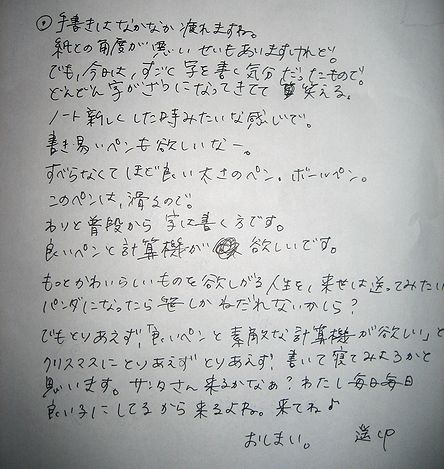 手書きはなかなか疲れますね。
紙との角度が悪いせいもありますけれど。
でも、今日は、すごく字を書く気分だったもので。
どんどん字がざらになってきてて笑える。
ノート新しくした時みたいな感じで。
書き易いペンも欲しいなー。
すべらなくてほど良い太さのペン。ボールペン。
このペンは、滑るので。
わりと普段から字は書く方です。
良いペンと計算機が欲しいです。
もっとかわいらしいものを欲しがる人生を、来世は送ってみたい
パンダになったら笹しかねだれないかしら？
でもとりあえず「良いペンと素敵な計算機が欲しい」と
クリスマスにとりあえずとりあえず！書いて寝てみようかと
思います。サンタさん来るかなぁ？わたし毎日毎日
良い子にしてるから来るよね。来てね♪
おしまい。